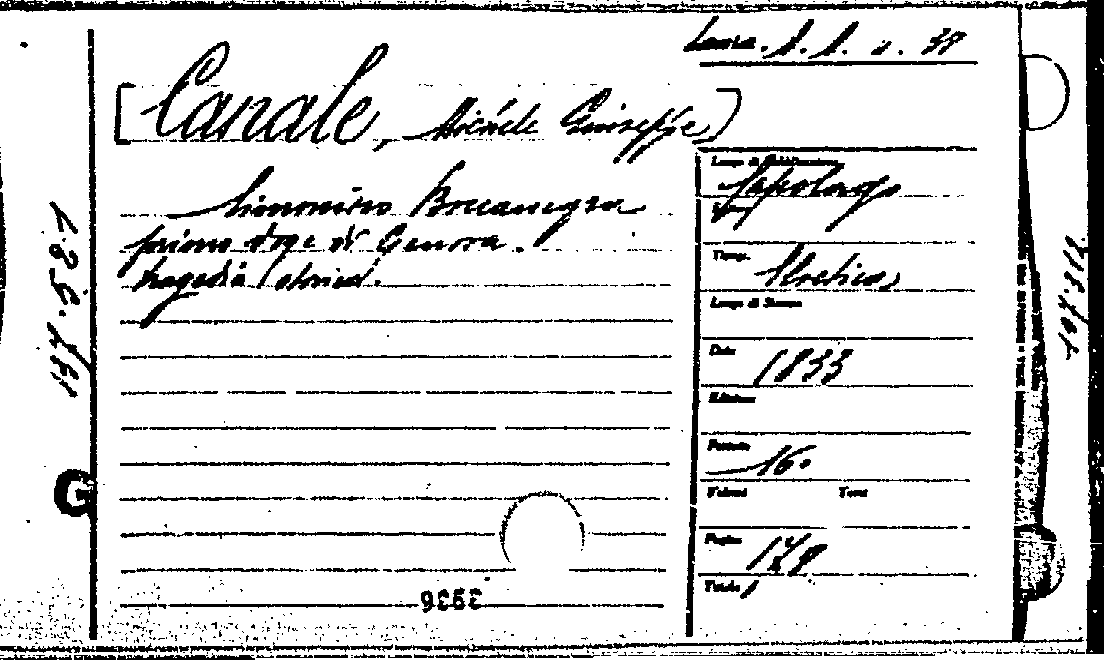 [Canale, Michele Giuseppe]
Simonino Boccanegra
primo doge di Genova.
tragedia storica.
Luogo di Pubblicazione
Capolago
Tipog.
Elvetica
Luogo di Stampa
Data
1833
Edizione
Formato
16º
Volumi Tomi
Pagine
178
G
3936